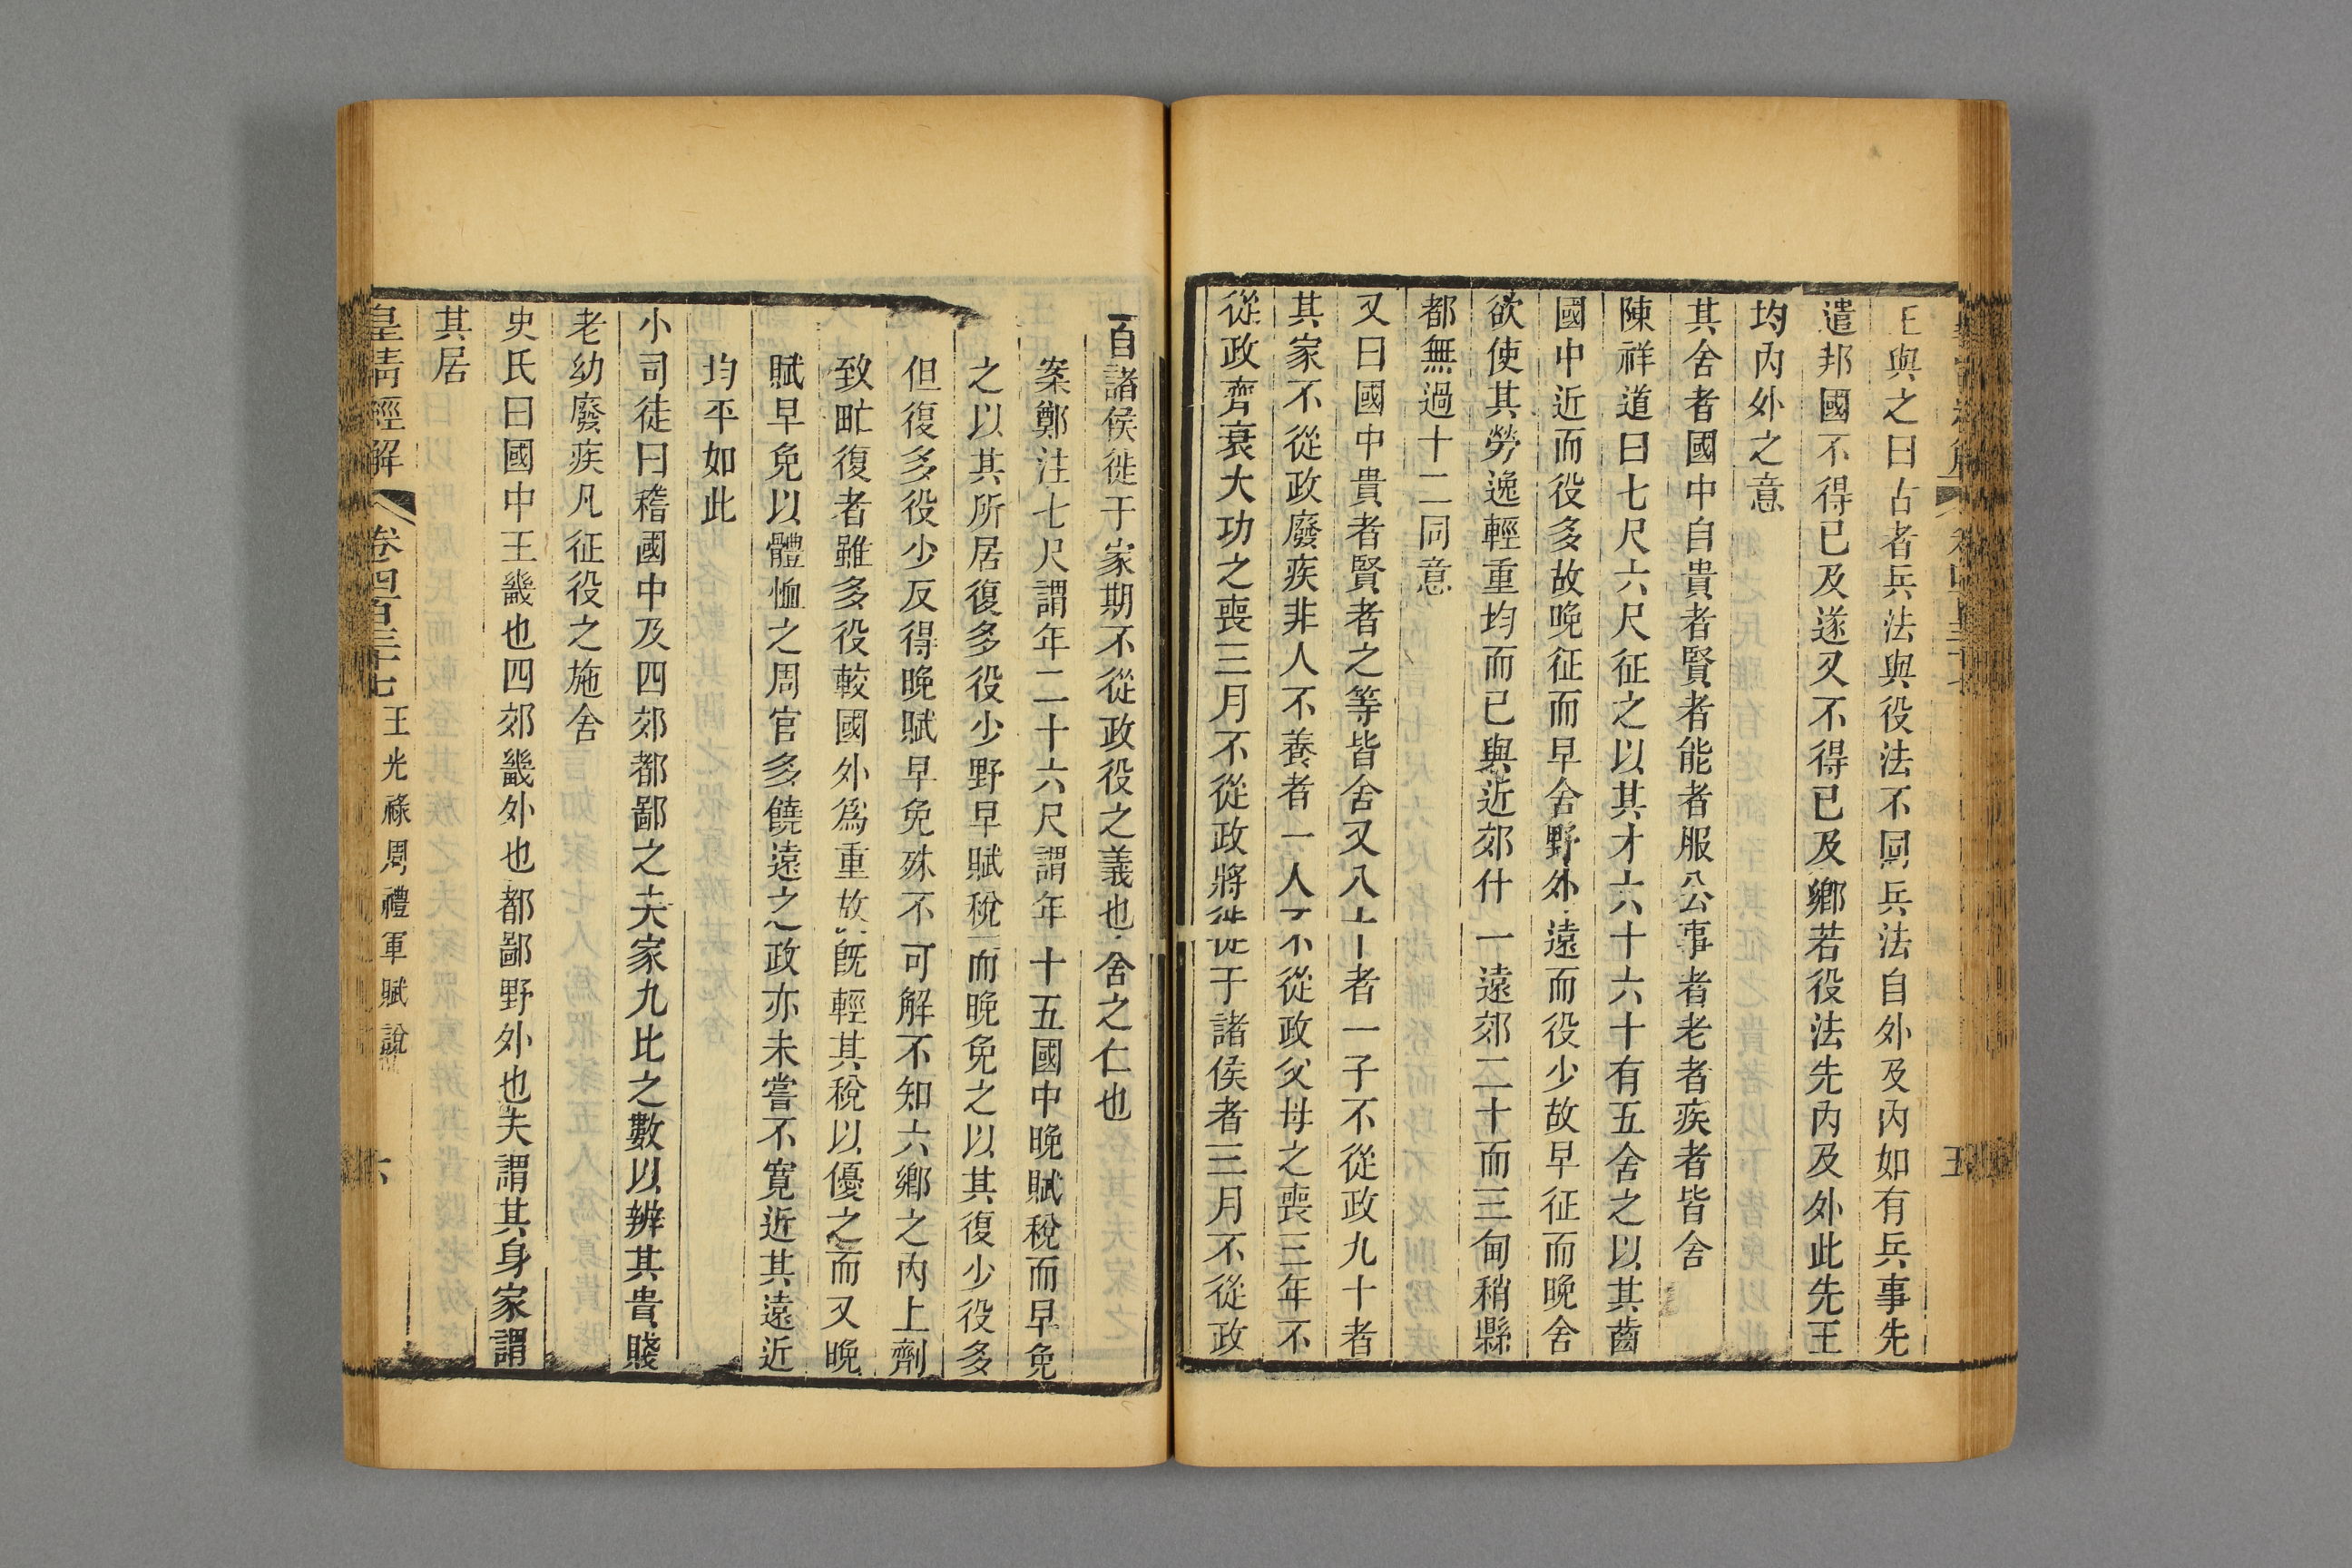 王與之曰古者兵法與役法不同兵法自外及內如有兵事先
遣邦國不得已及遂又不得已及鄉若役法先內及外此先王
均內外之意
其舍者國中自貴者賢者能者服公事者老者疾者皆舍
陳祥道曰七尺六尺征之以其才六十六十有五舍之以其齒
國中近而役多故晚征而早舍野外遠而役少故早征而晚舍
欲使其勞逸輕重均而已與近郊什一遠郊二十而三甸稍縣
都無過十二同意
又曰國中貴者賢者之等皆舍又八十者一子不從政九十者
其家不從政廢疾非人不養者一人不從政父母之喪三年不
從政齊衰大功之喪三月不從政將徙于諸侯者三月不從政
自諸侯徙于家期不從政役之義也舍之仁也
案鄭注七尺謂年二十六尺謂年十五國中晚賦稅而早免
之以其所居復多役少野早賦稅而晚免之以其復少役多
但復多役少反得晚賦早免殊不可解不知六鄉之內上劑
致甿復者雖多役較國外為重故既輕其稅以優之而又晚
賦早免以體恤之周官多饒遠之政亦未嘗不寬近其遠近
均平如此
小司徒曰稽國中及四郊都鄙之夫家九比之數以辨其貴賤
老幼廢疾凡征役之施舍
史氏曰國中王畿也四郊畿外也都鄙野外也夫謂其身家謂
其居
皇清經解 卷四百三十七 王光祿周禮軍賦說 六